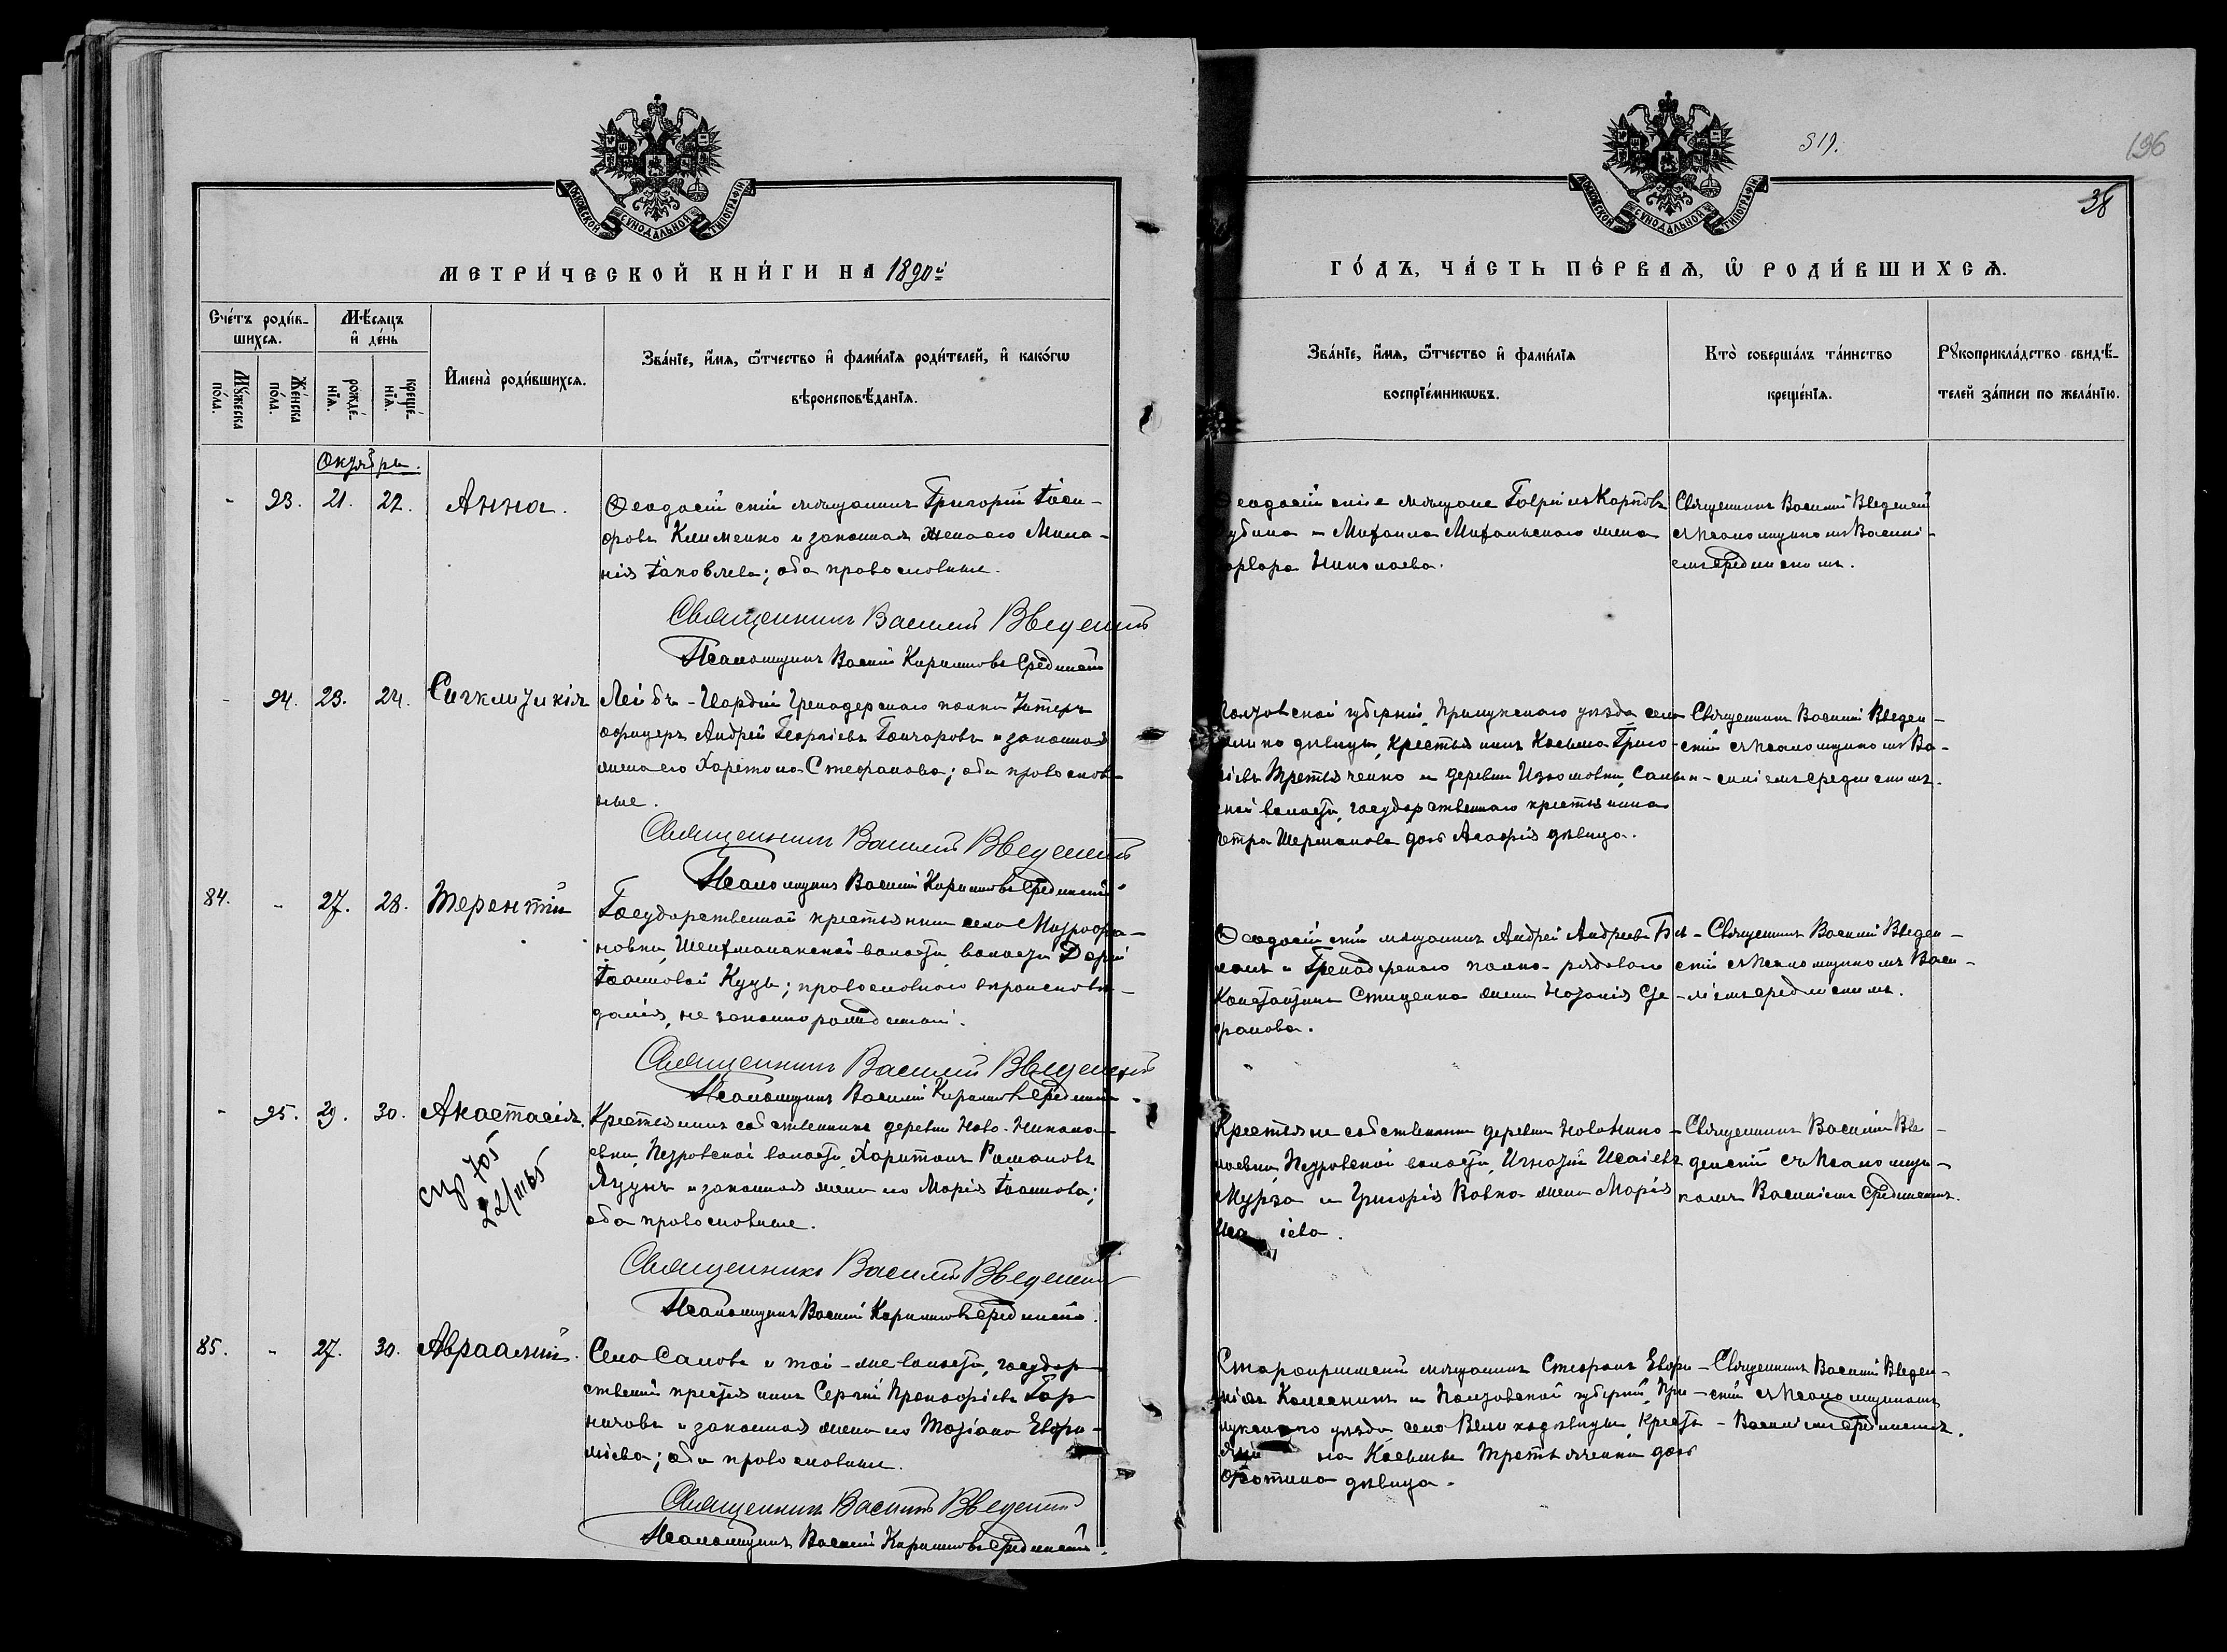 МОСКОВСКОЙ СѴНОДАЛЬНОЙ ТѴПОГРАФІИ
МЕТРИ́ЧЕСКОЙ КНИ́ГИ НА 1890й
Счéтъ роди́в-
шихся.
Мѣ́сяцъ
и҆ дéнь
Мꙋ́жеска
пóла.
Жéнска
пóла.
рождé-
нїѧ.
крещé-
нїѧ.
И҆менà роди́вшихсѧ.
Звáнїе, и҆́мѧ, ѻ҆́тчество и҆ фами́лїѧ роди́телей, и҆ какóгѡ
вѣроисповѣ́данїѧ.
Октября.
- 93. 21. 22. Анна.
Ѳеодосійскій мѣщанинъ Григорій Іоси-
фовъ Клименко и законная жена его Мила-
нія Іаковлева; оба православные.
Священникъ Василій Введенскій
Псаломщикъ Василій Кирилловъ Срединскій
- 94. 23. 24. Сигклитикія
Лейбъ-Гвардіи Гренадерскаго полка Унтеръ
офицеръ Андрей Георгіевъ Гончаровъ и законная
жена его Харитона Стефанова; оба православ-
ные.
Священникъ Василій Введенскій
Псаломщикъ Василій Кирилловъ Срединскій
84. - 27. 28. Терентій
Государственной крестьянки села Митрофа-
новки, волости Дарьи
Іоанновой Куцъ; православнаго вѣроисповѣ-
данія, незаконнорожденный.
Священникъ Василій Введенскій
Псаломщикъ Василій Кирилловъ Срединскій
- 95. 29. 30. Анастасія.
Крестьянинъ собственникъ деревни Ново-Никола-
евки, Петровской волости, Харитонъ Романовъ
и законная жена его Марія Іоаннова;
оба православные.
22/III 65
Священникъ Василій Введенскій
Псаломщикъ Василій Кирилловъ Срединскій.
85. - 27. 30. Авраамій.
Села Салова и той-же волости, государ-
ственный крестьянинъ Сергій Прокофіевъ Гор-
ничовъ и законная жена его Татіана Евфи-
міева; оба православные.
Священникъ Василій Введенскій
Псаломщикъ Василій Кирилловъ Срединскій.
519.
196
38
МОСКОВСКОЙ СѴНОДАЛЬНОЙ ТѴПОГРАФІИ
ГÓДЪ, ЧÁСТЬ ПÉРВАѦ, Ѡ҆ РОДИ́ВШИХСѦ.
Звáнїе, и҆́мѧ, ѻ҆́тчество и҆ фами́лїѧ
воспрїéмникѡвъ.
Ктò совершáлъ тáинство
крещéнїѧ.
Рꙋкоприклáдство свидѣ́-
телей зáписи по желáнїю.
Ѳеодосійскіе мѣщане Гавріилъ Карповъ
и Михаила Михальскаго жена
Николаева.
Священникъ Василій Введенскій
съ псаломщикомъ Василі-
емъ Срединскимъ.
Полтавской губерніи, Прилукскаго уѣзда села
крестьянинъ Косьма Григо-
ріевъ Третьяченко и деревни Изюмовки, Салын-
ской волости, государственнаго крестьянина
Петра Шерманова дочь Агафія дѣвица.
Священникъ Василій Введен-
скій съ псаломщикомъ Ва-
силіемъ Срединскимъ.
Ѳеодосійскій мѣщанинъ Андрей Андреевъ
и Гренадерскаго полка рядоваго
Константина Стиценка жена Наталія Сте-
фанова.
Священникъ Василій Введен-
скій съ псаломщикомъ Васи-
ліемъ Срединскимъ.
Крестьяне собственники деревни Новонико-
лаевки, Петровской волости, Игнатій Исаіевъ
Мурза и Григорія Вовка жена Марія
Исаіева.
Священникъ Василій Вве-
денскій съ псаломщи-
комъ Василіемъ Срединскимъ.
Старокрымскій мѣщанинъ Стефанъ Евфи-
міевъ Колесникъ и Полтавской губерніи, При-
лукскаго уѣзда, села кресть-
янина Косьмы Третьяченка дочь
Фотина дѣвица.
Священникъ Василій Введен-
скій съ псаломщикомъ
Василіемъ Срединскимъ.